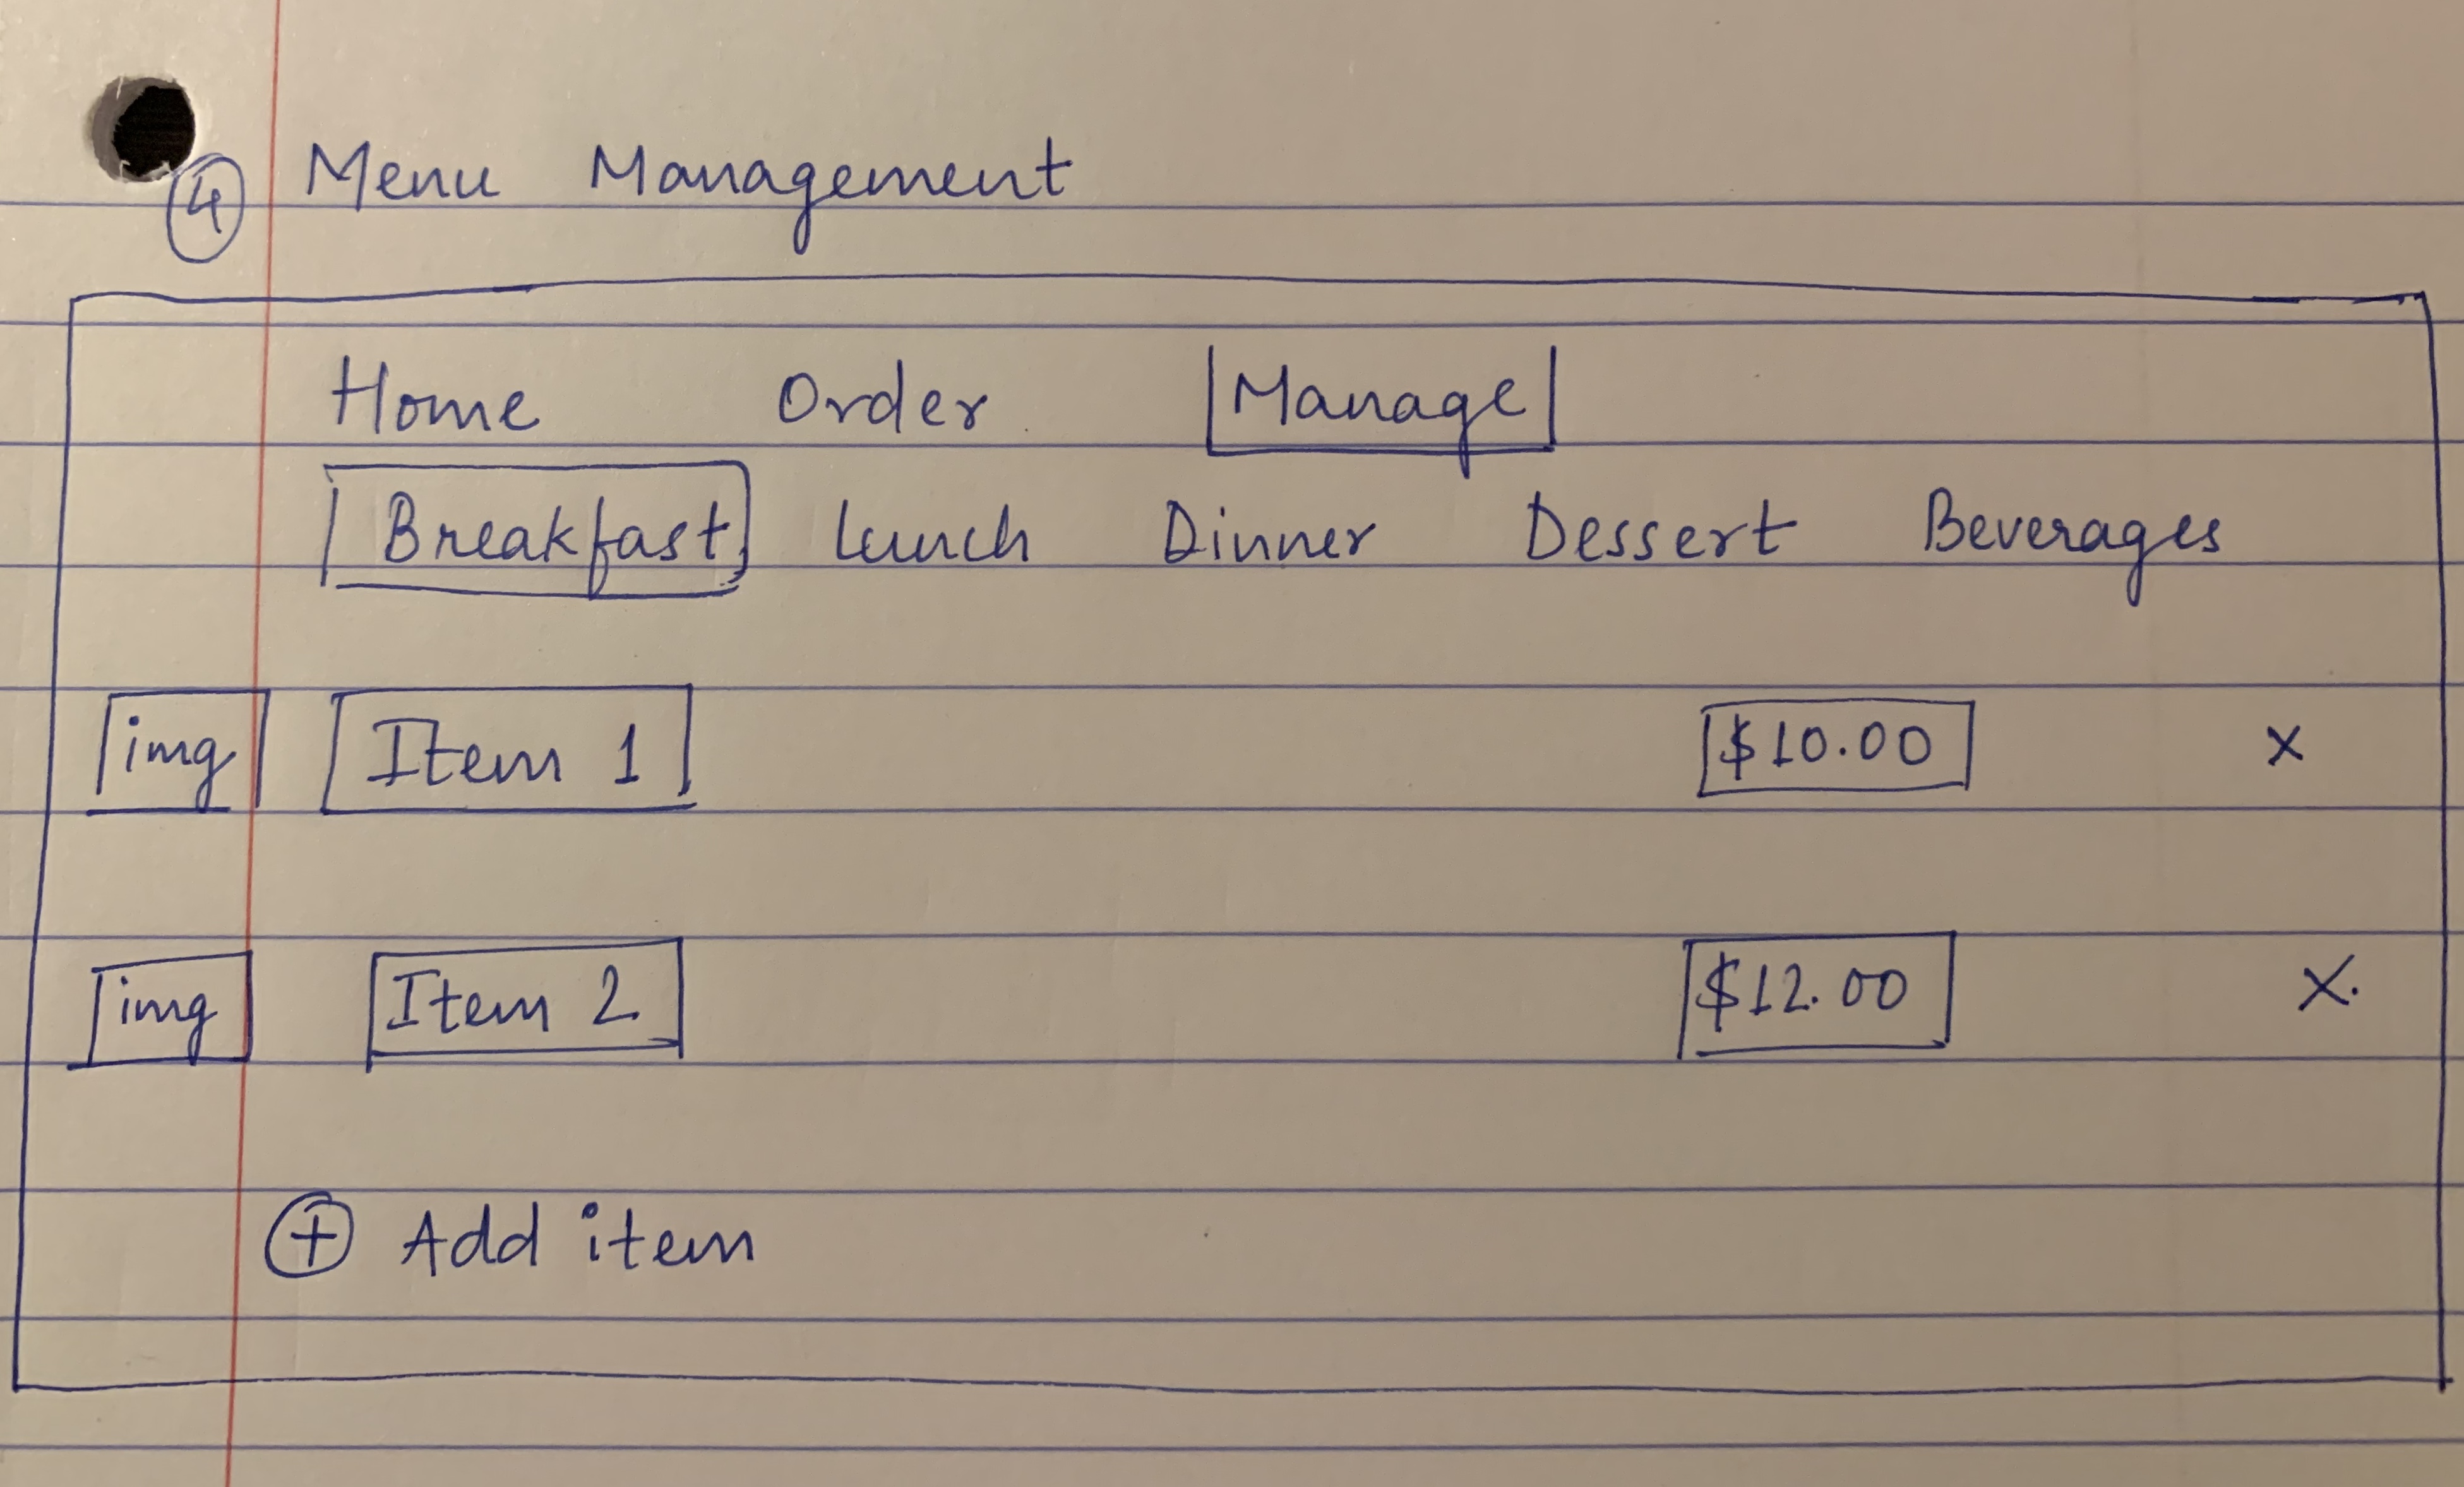 ④ Menu Management
Home Order Manage
Breakfast Lunch Dinner Dessert Beverages
img Item 1 $10.00 x
img Item 2 $12.00 x.
⊕ Add item